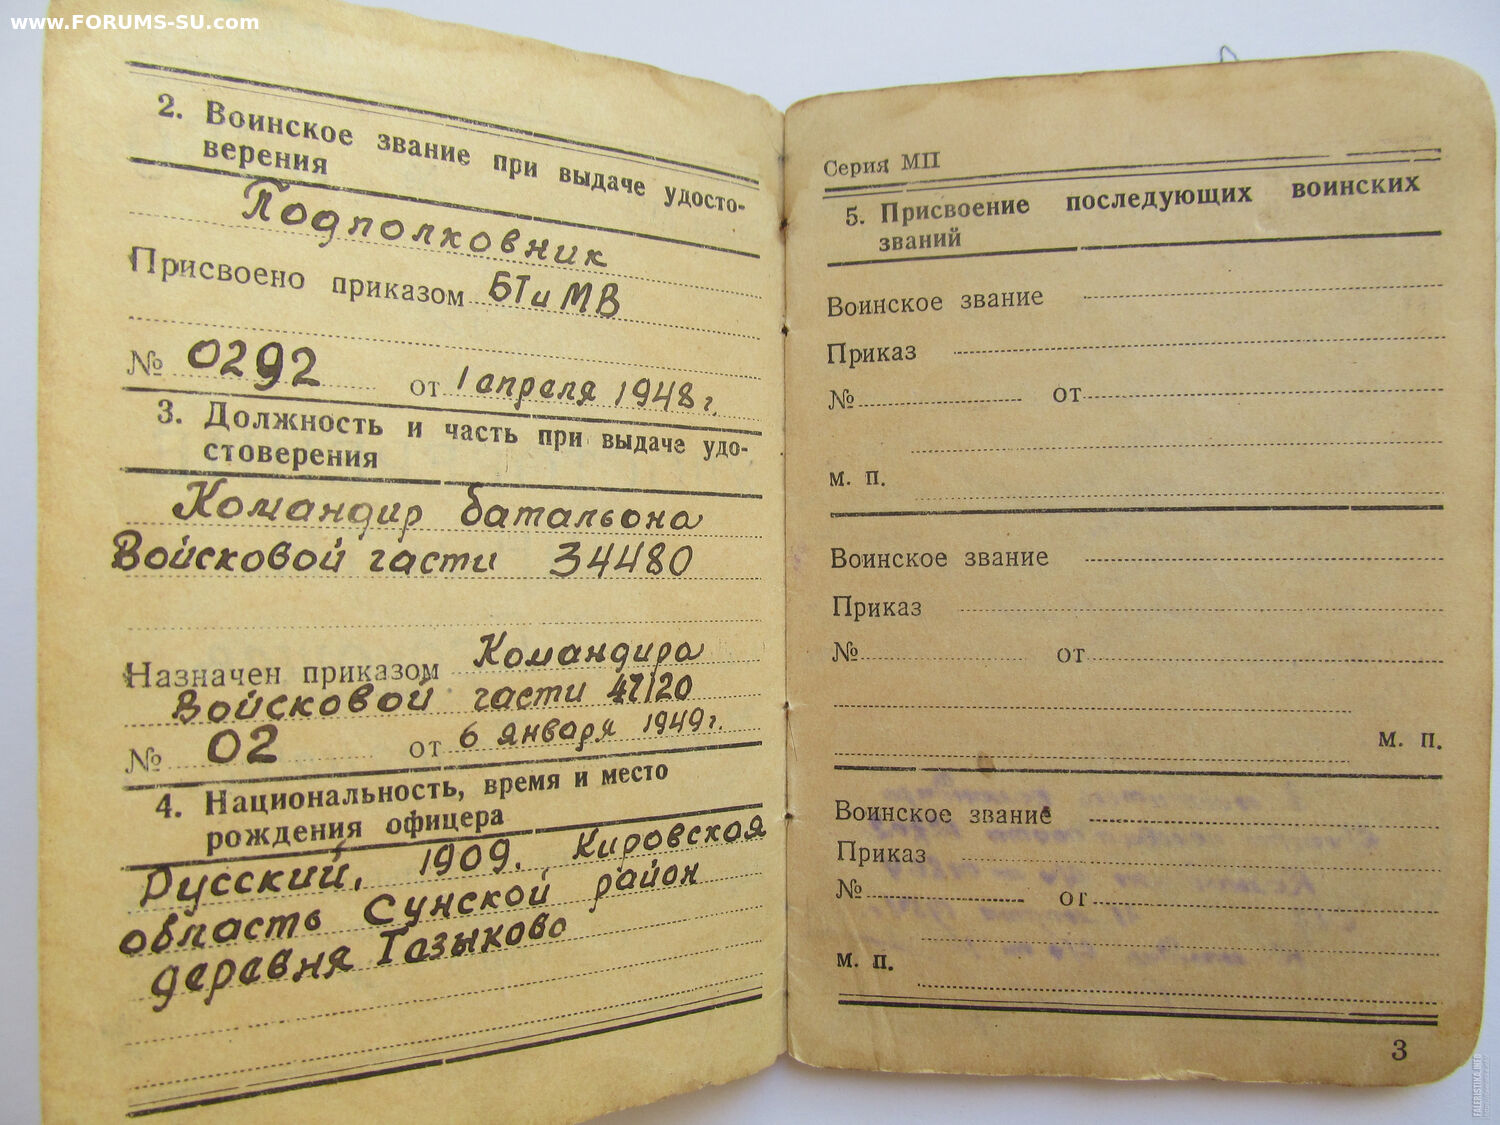 www.FORUMS-SU.com
2. Воинское звание при выдаче удосто-
верения
Подполковник
Присвоено приказом БТ и МВ
№ 0292 от 1 апреля 1948 г.
3. Должность и часть при выдаче удо-
стоверения
Командир батальона
Войсковой части 34480
Назначен приказом Командира
Войсковой части 47120
№ 02 от 6 января 1949 г.
4. Национальность, время и место
рождения офицера
Русский, 1909. Кировская
область Сунской район
деревня Тазыково
Серия МП
5. Присвоение последующих воинских
званий
Воинское звание
Приказ
№ от
м. п.
Воинское звание
Приказ
№ от
м. п.
Воинское звание
Приказ
№ от
м. п.
3
FALERISTIKA.INFO